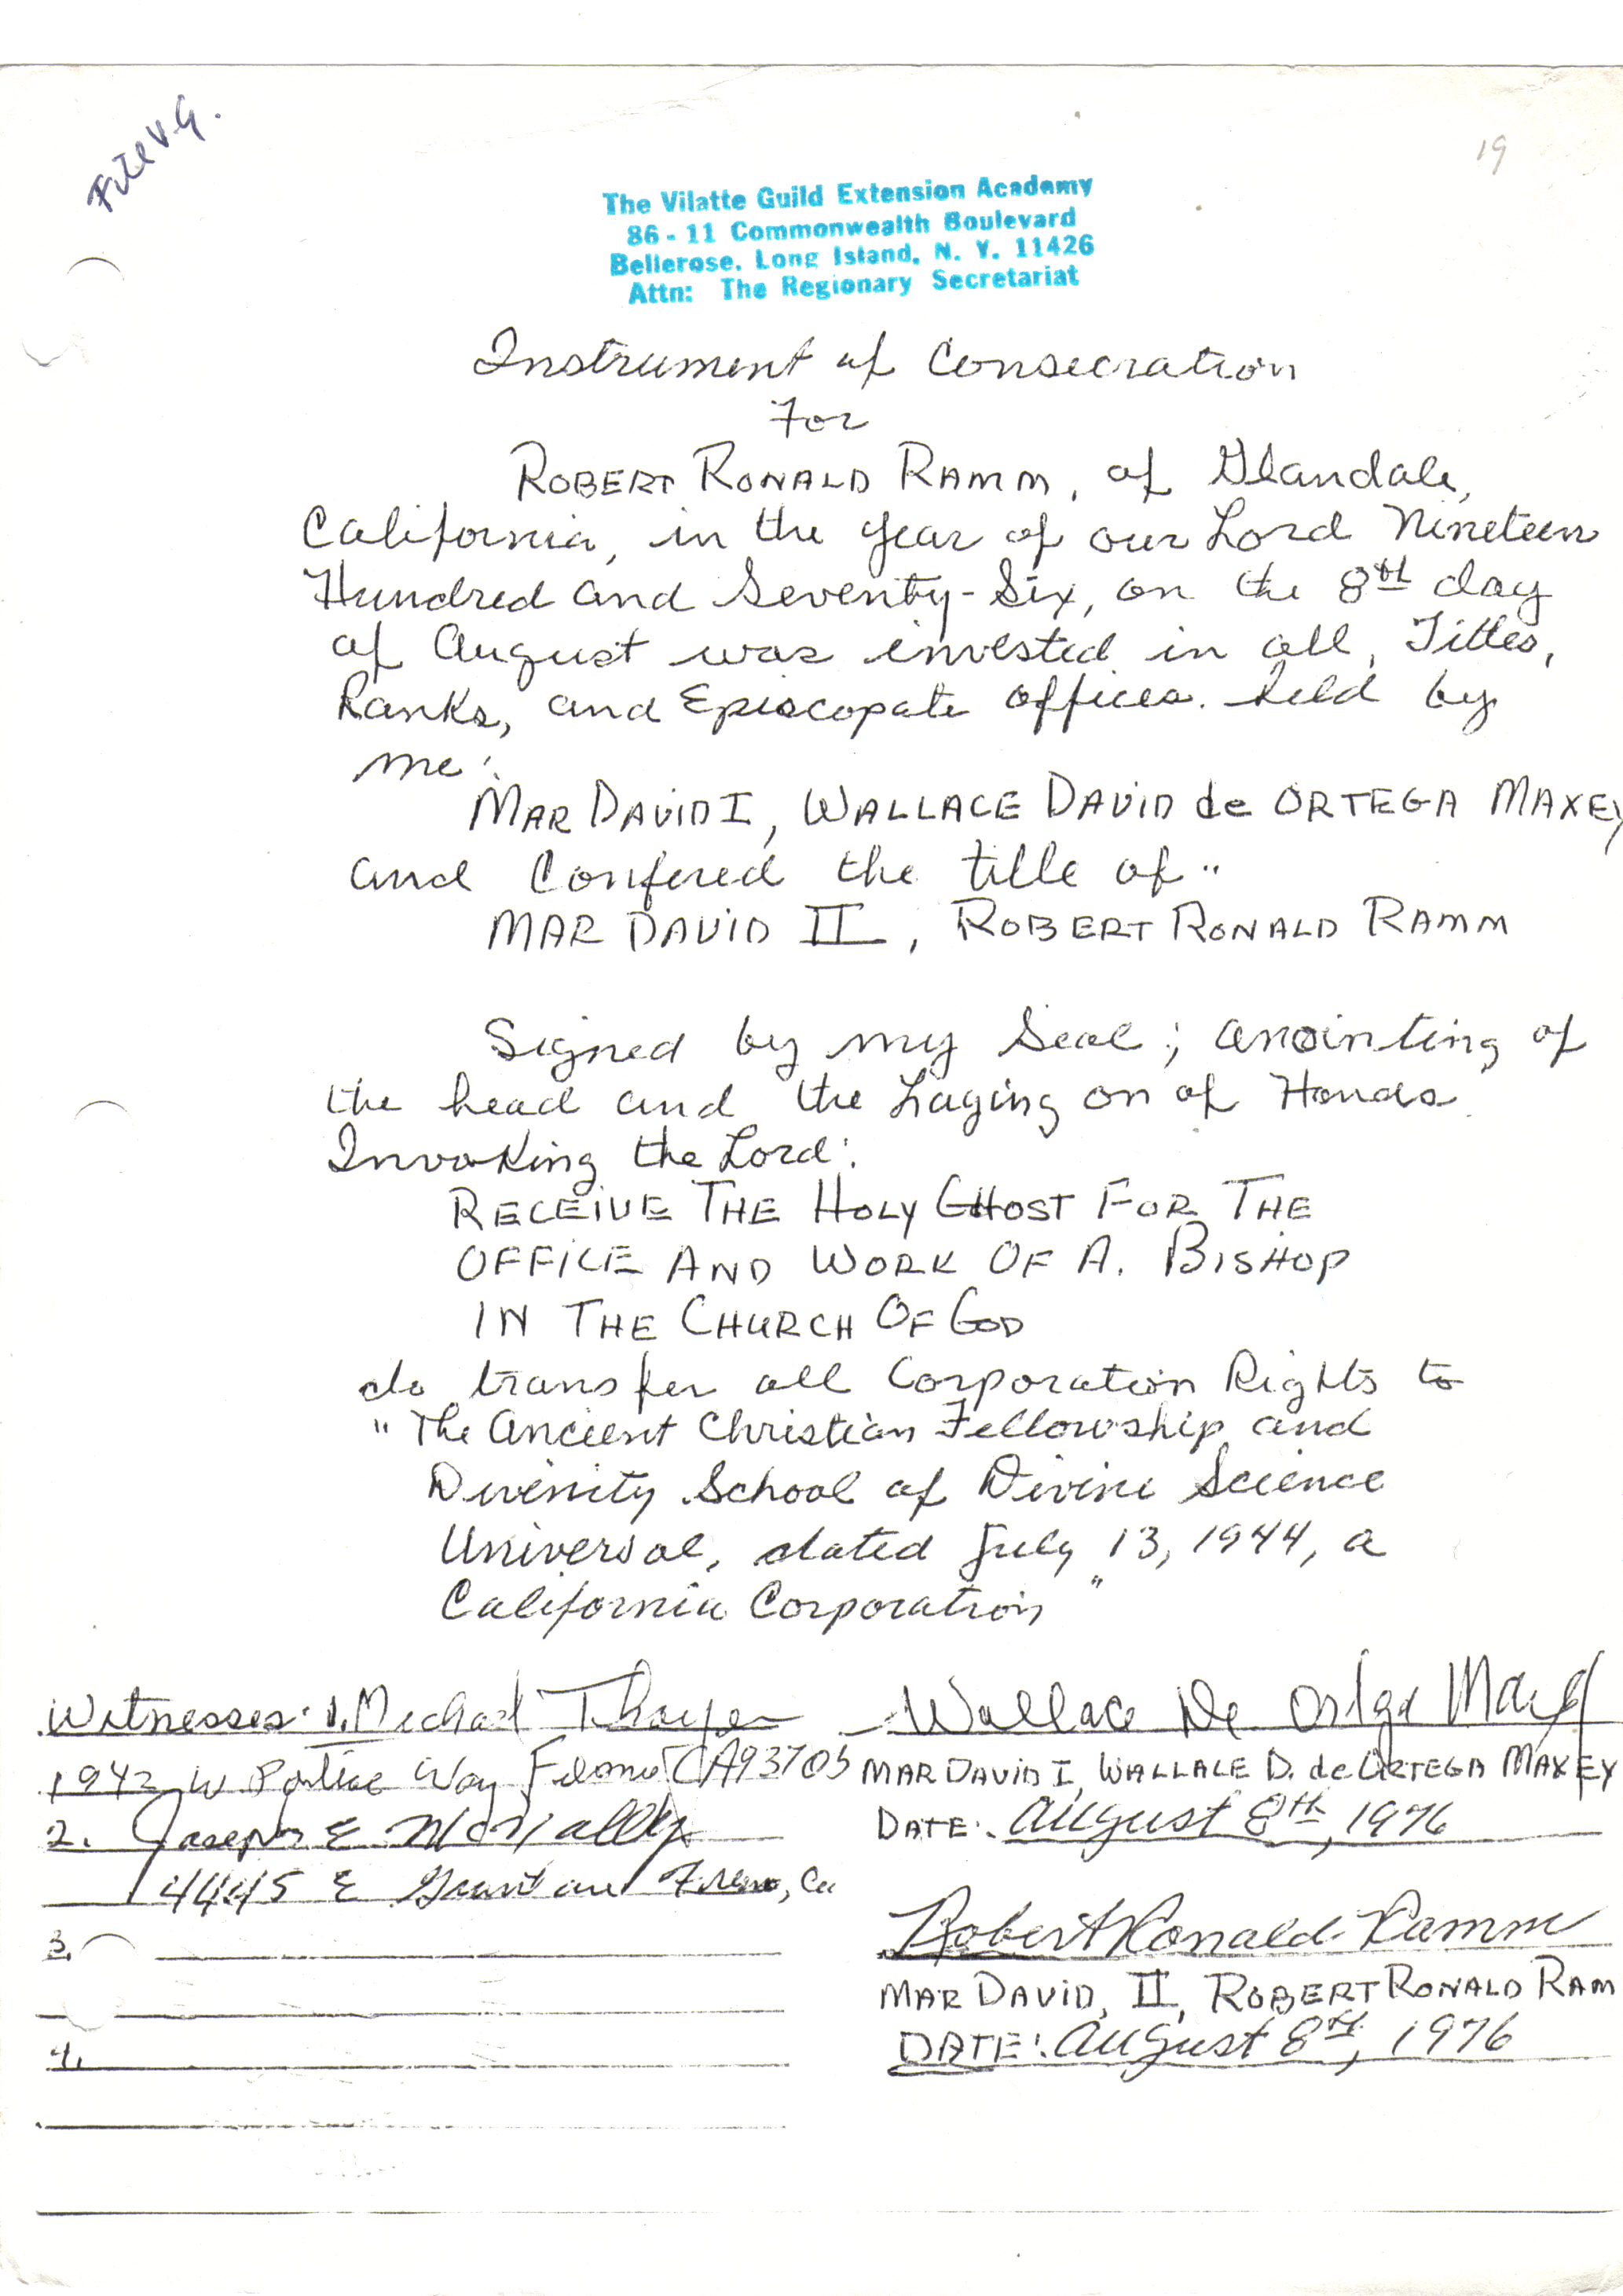 File V.G.
19
The Vilatte Guild Extension Academy
86 - 11 Commonwealth Boulevard
Bellerose, Long Island, N. Y. 11426
Attn: The Regionary Secretariat
Instrument of Consecration
For
ROBERT RONALD RAMM, of Glandale,
California, in the year of our Lord Nineteen
Hundred and Seventy-Six, on the 8th day
of August was invested in all, Titles,
Ranks, and Episcopate offices. held by
me:
MAR DAVID I, WALLACE DAVID de ORTEGA MAXEY
and Confered the title of"
MAR DAVID II, ROBERT RONALD RAMM
Signed by my Seal; anointing of
the head and the Laying on of Hands
Invoking the Lord:
RECEIVE THE HOLY GHOST FOR THE
OFFICE AND WORK OF A. BISHOP
IN THE CHURCH OF GOD
do transfer all Corporation Rights to
"The Ancient Christian Fellowship and
Divinity School of Divine Science
Universal, dated July 13, 1944, a
California Corporation"
Witnesses: 1. Michael Thayer
1942 W Pontiac Way Fresno CA 93705
2. Joseph E McNally
4445 E Grant ave Fresno, Ca
3.
4.
Wallace De Ortega Maxey
MAR DAVID I, WALLACE D. de ORTEGA MAXEY
DATE: August 8th, 1976
Robert Ronald Ramm
MAR DAVID, II, ROBERT RONALD RAM
DATE: August 8th, 1976